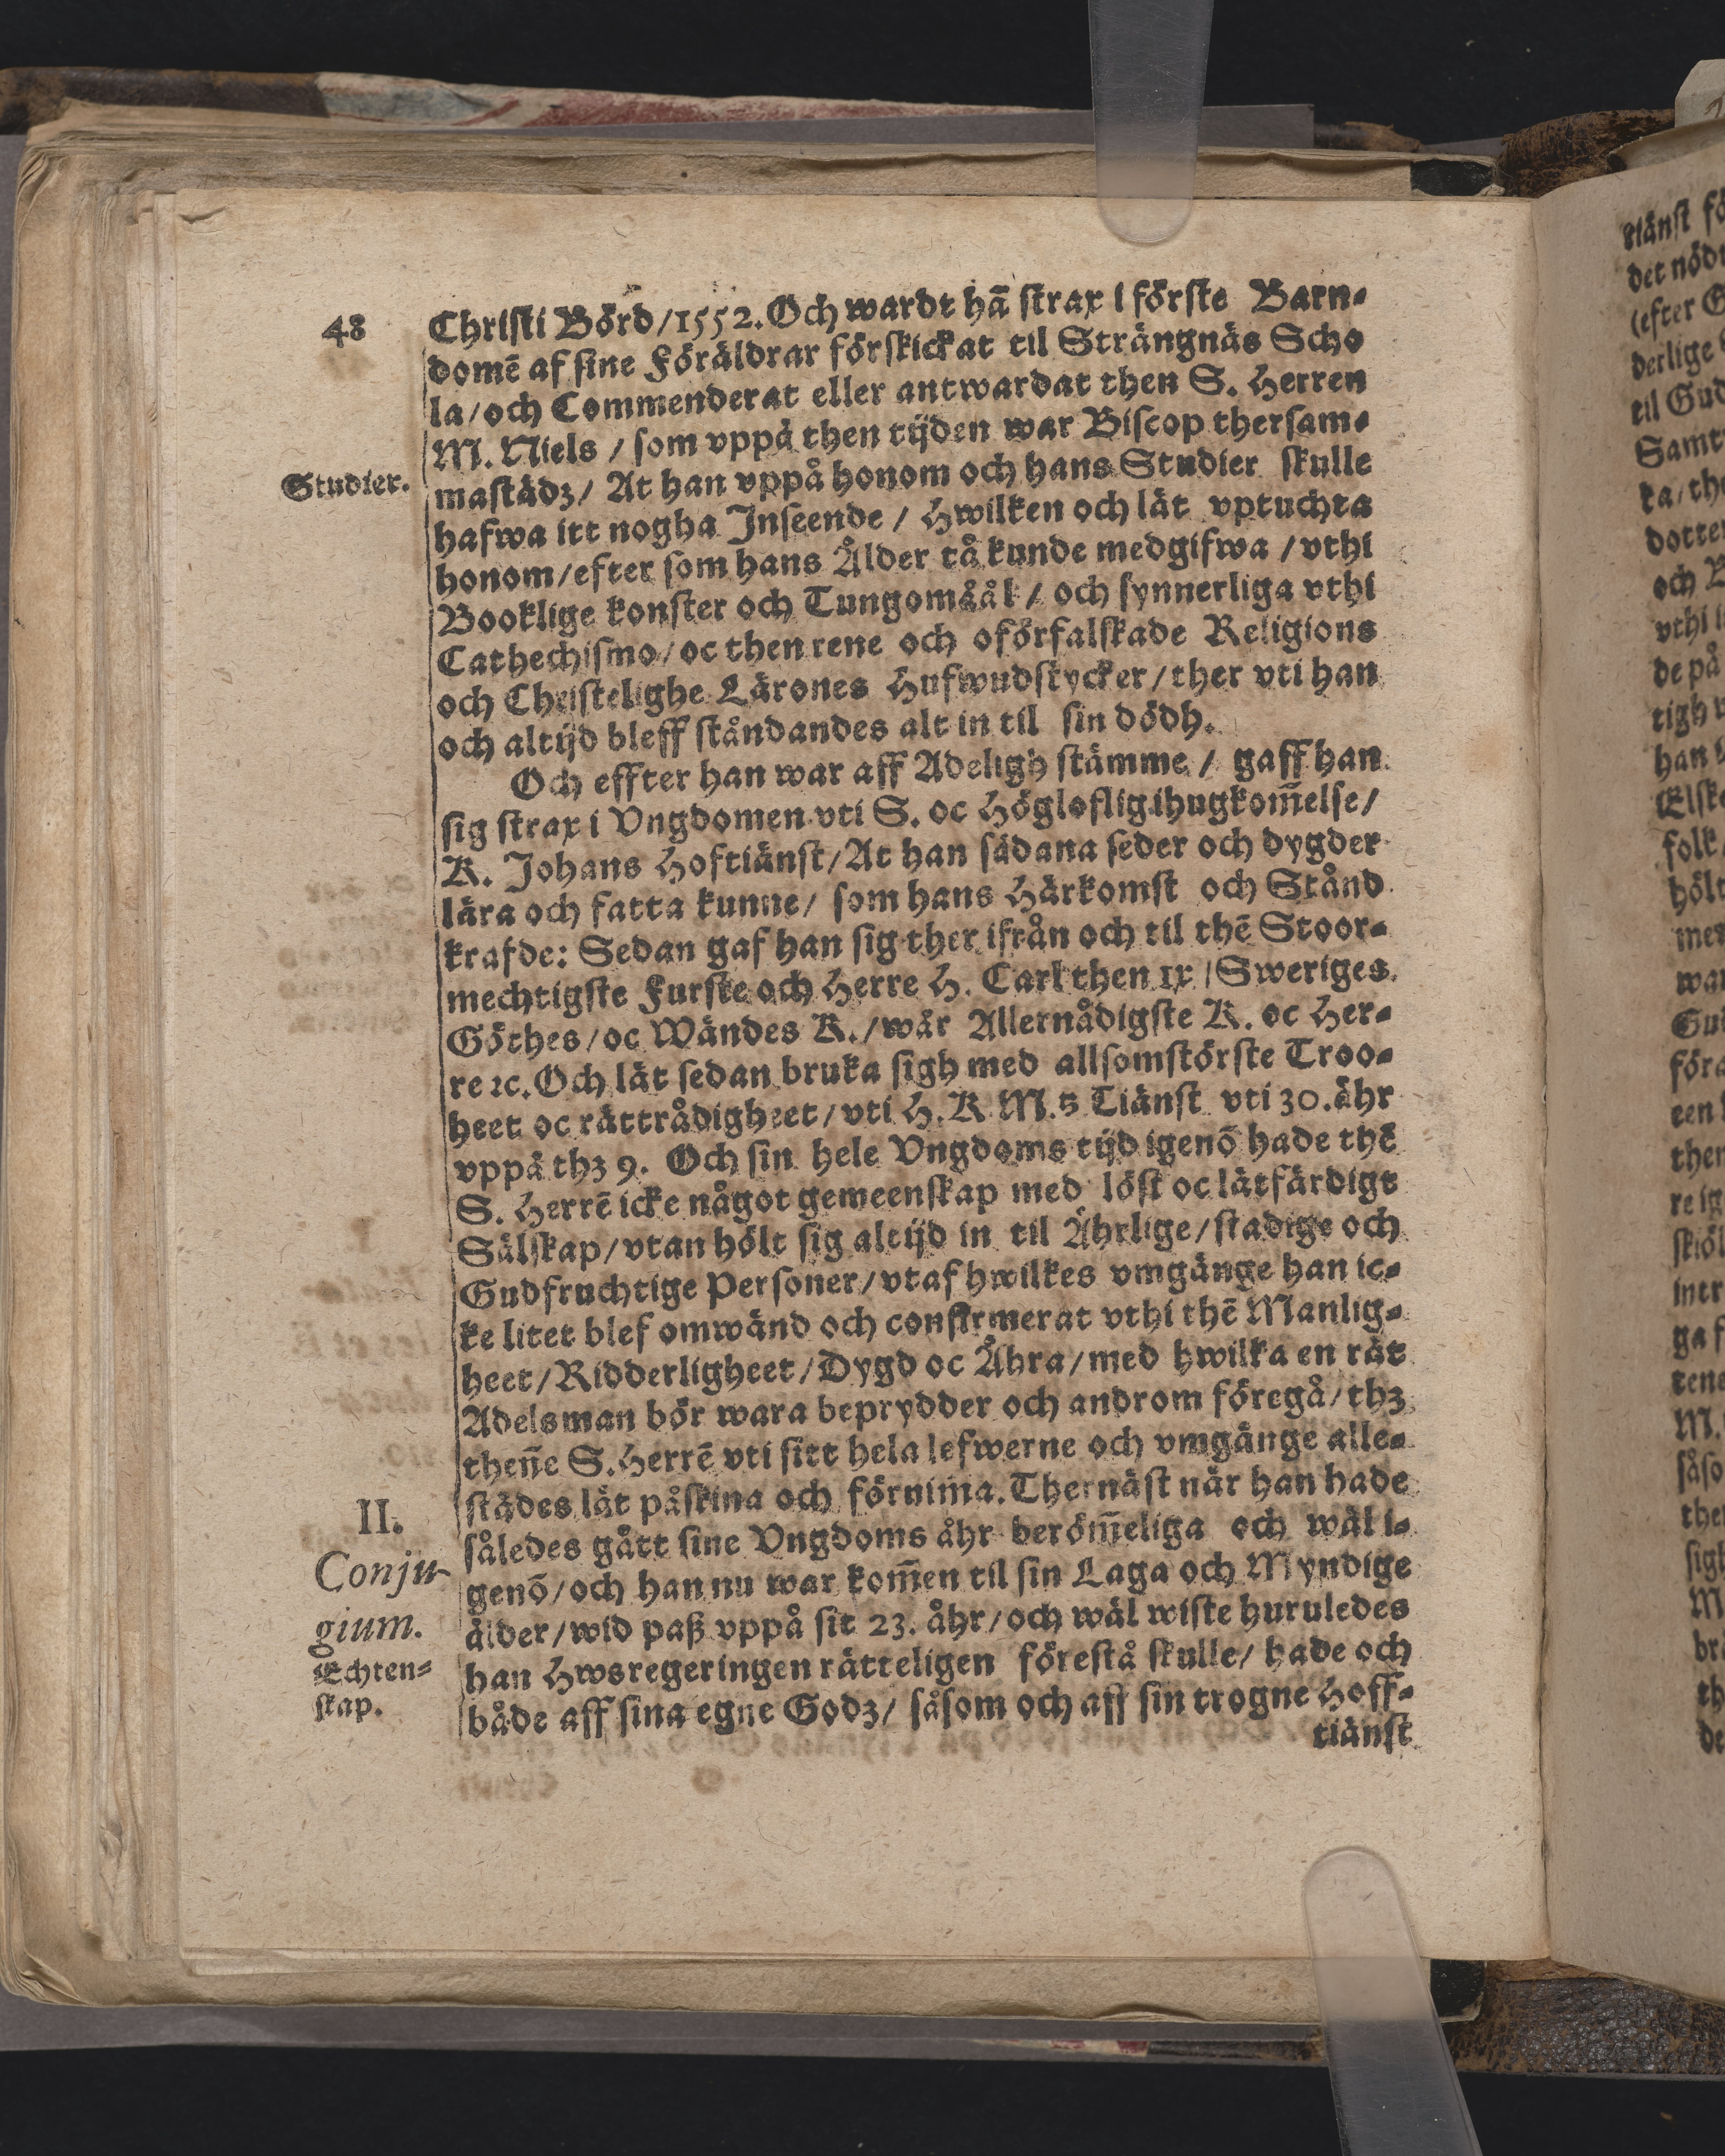 48
Christi Börd/1552. Och wardt hā strax i förste Barn-
domē af sine Föräldrar förskickat til Strängnäs Scho
la/och Commenderat eller antwardat then S. Herren
M. Niels / som vppå then tijden war Biscop thersam-
Studier.
mastädz/ At han vppå honom och hans Studier skulle
hafwa itt nogha Inseende / Hwilken och lät vptuchta
honom/efter som hans Ålder tå kunde medgifwa /vthi
Booklige konster och Tungomåål/ och synnerliga vthi
Cathechismo/oc then rene och oförfalskade Religions
och Christelighe Lärones Hufwudstycker/ther vti han
och altijd bleff ståndandes alt in til sin dödh.
Och effter han war aff Adeligh stämme / gaff han
sig strax i Vngdomen vti S. oc Höglofligihugkom̄else/
K. Johans Hoftiänst/At han sådana seder och dygder
lära och fatta kunne/ som hans Härkomst och Stånd
krafde: Sedan gaf han sig ther ifrån och til thē Stoor-
mechtigste Furste och Herre H. Carl then IX /Sweriges
Göthes/oc Wändes K./wår Allernådigste K. oc Her-
re ꝛc. Och lät sedan bruka sigh med allsomstörste Troo-
heet oc rättrådigheet/vti H. K M.tz Tiänst vti 30. åhr
vppå thz 9. Och sin hele Vngdoms tijd igenō hade thē
S. Herrē icke något gemeenskap med löst oc lätfärdigt
Sälskap/vtan hölt sig altijd in til Ährlige/stadige och
Gudfruchtige Personer/vtaf hwilkes vmgänge han ic-
ke litet blef omwänd och confirmerat vthi thē Manlig-
heet/Ridderligheet/Dygd oc Åhra/med hwilka en rät
Adelsman bör wara beprydder och androm föregå/thz
then̄e S. Herrē vti sitt hela lefwerne och vmgänge alle-
städes lät påskina och förnim̄a. Thernäst när han hade
II.
således gått sine Vngdoms åhr beröm̄eliga och wäl i-
Conju-
genō/och han nu war kom̄en til sin Laga och Myndige
gium.
ålder/wid paß vppå sit 23. åhr/och wäl wiste huruledes
Echten-
han Hwsregeringen rätteligen förestå skulle/ hade och
skap.
både aff sina egne Godz/ såsom och aff sin trogne Hoff-
tiänst